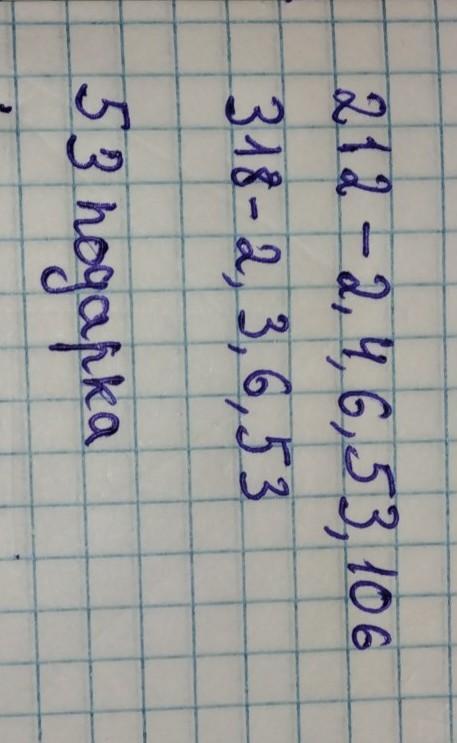 212 - 2, 4, 6, 53, 106
318 - 2, 3, 6, 53
53 подарка